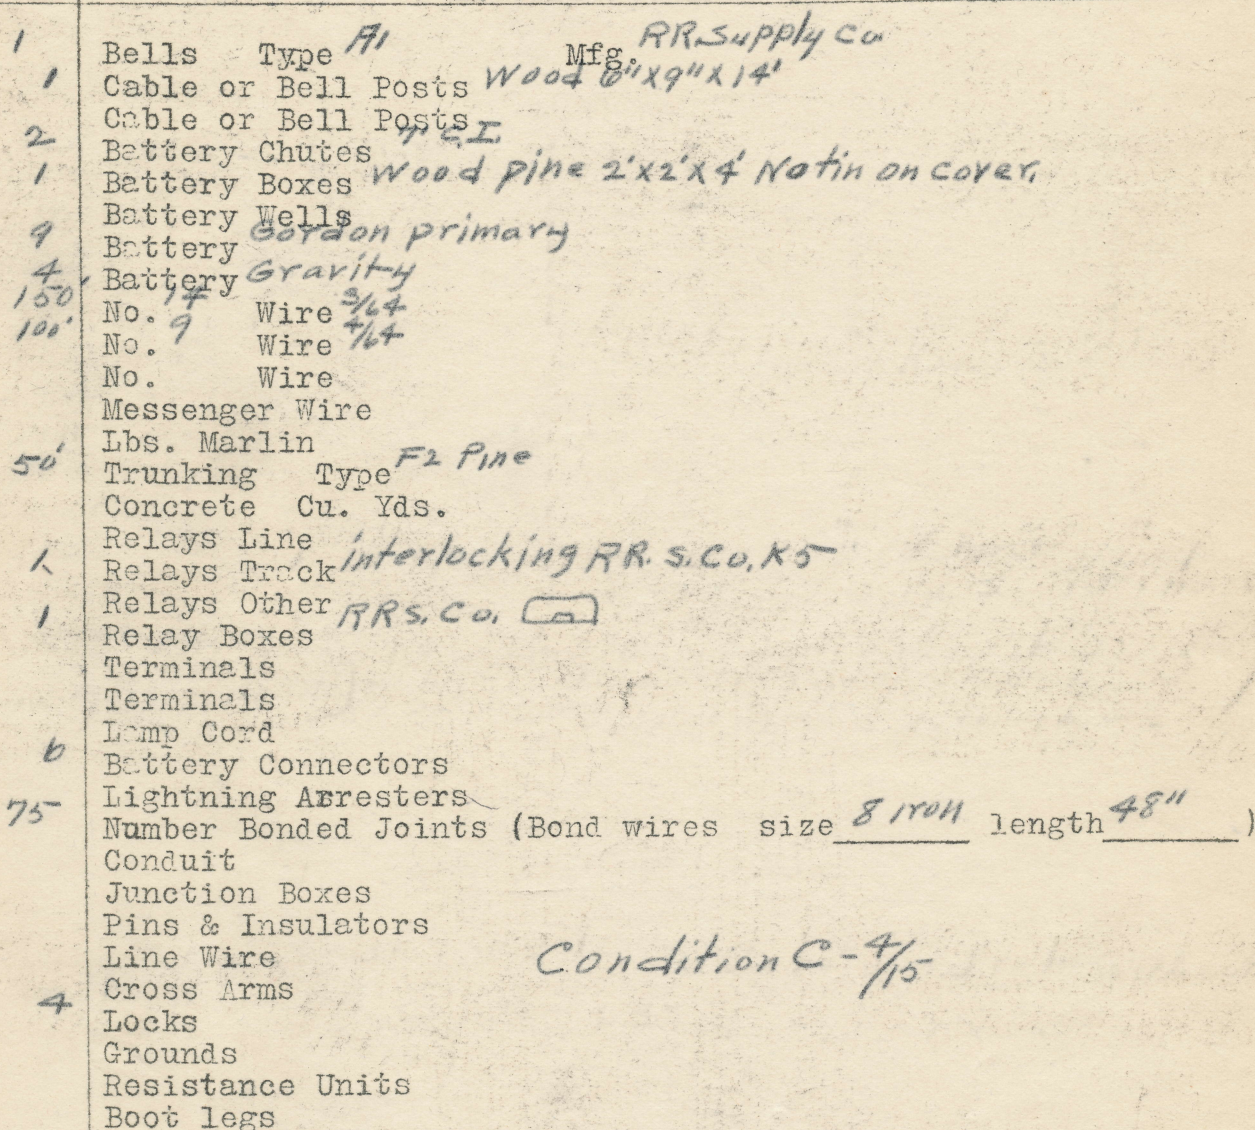 1 Bells Type A1 Mfg. RR Supply Co
1 Cable or Bell Posts Wood 6"x9"x14'
Cable or Bell Posts
2 Battery Chutes T.C.I.
1 Battery Boxes Wood pine 2'x2'x4' No tin on cover.
Battery Wells
9 Battery Gordon primary
4 Battery Gravity
150' No. 14 Wire 3/64
100' No. 9 Wire 4/64
No. Wire
Messenger Wire
Lbs. Marlin
50' Trunking Type F2 Pine
Concrete Cu. Yds.
Relays Line
1 Relays Track interlocking RR. S. Co. K5
Relays Other
1 Relay Boxes RRS. Co.
Terminals
Terminals
Lamp Cord
6 Battery Connectors
Lightning Arresters
75 Number Bonded Joints (Bond wires size 8 iron length 48" )
Conduit
Junction Boxes
Pins & Insulators
Line Wire Condition C - 4/15
Cross Arms
4 Locks
Grounds
Resistance Units
Boot legs